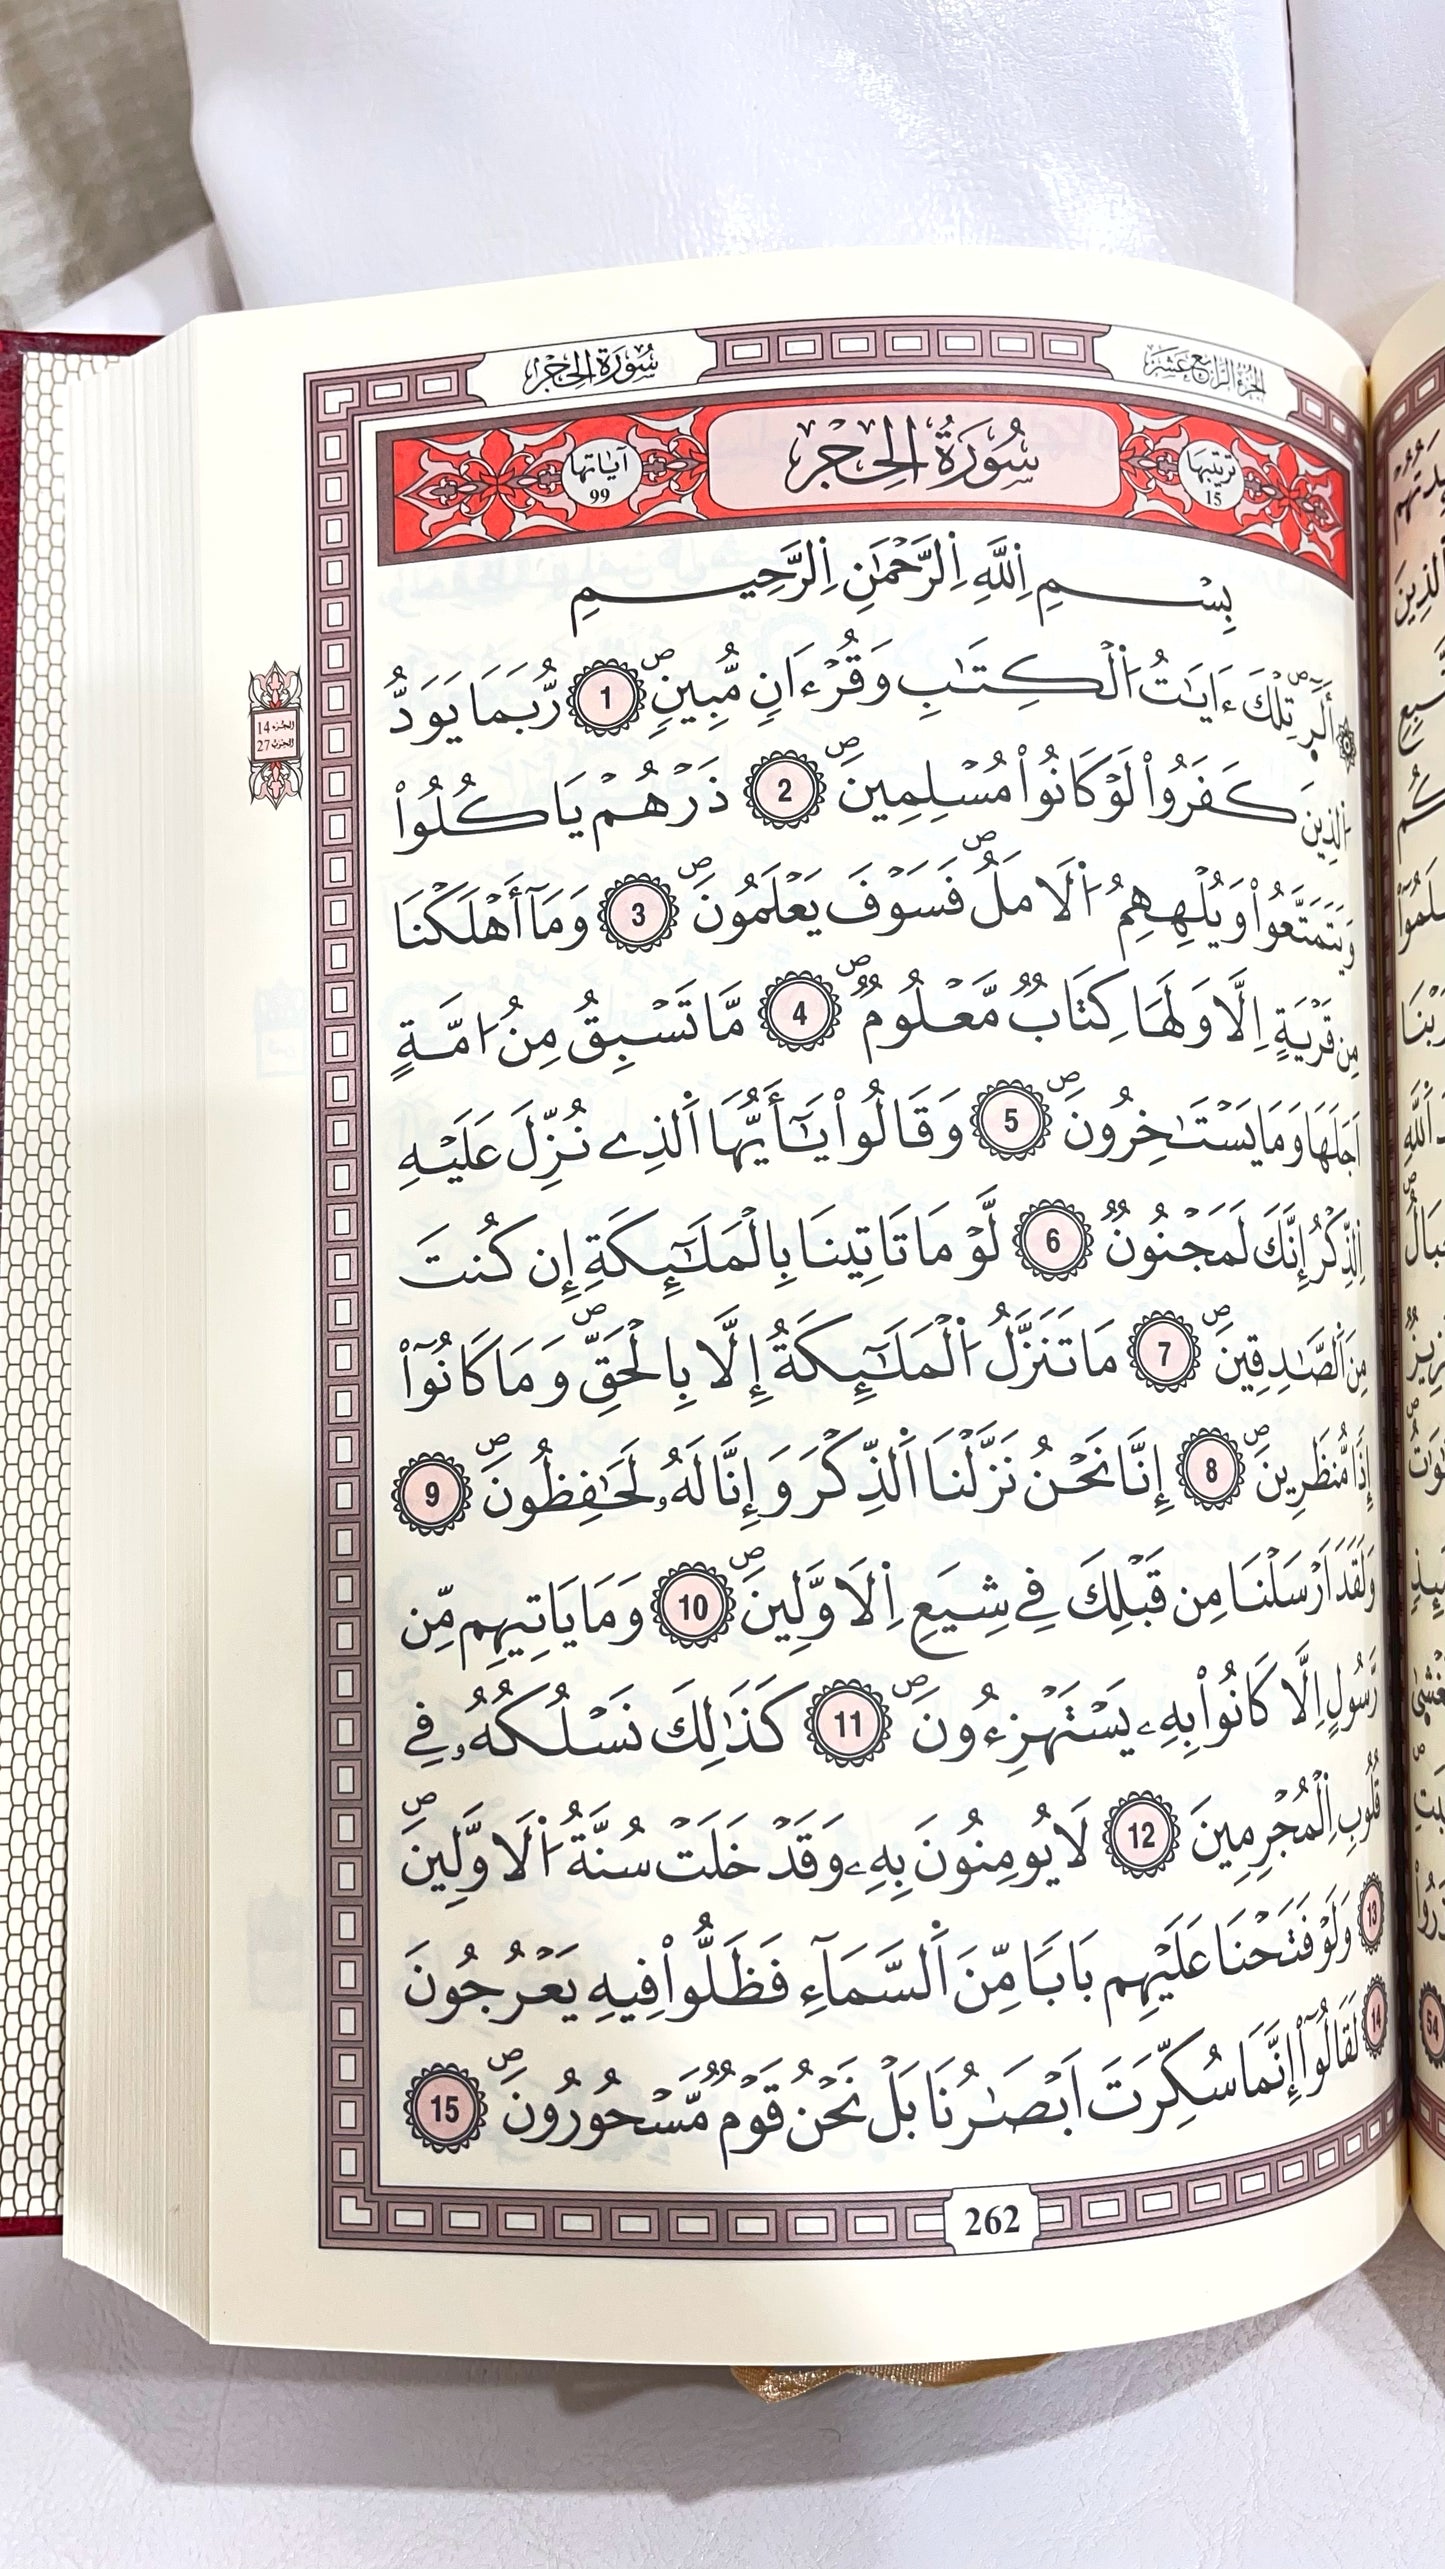 سُورَةُ الحِجْرِ
الجُزْءُ الرَّابِعَ عَشَرَ
ترتيبها 15
سُورَةُ الحِجْرِ
آياتها 99
بِسْمِ اِللَّهِ اِلرَّحْمَٰنِ اِلرَّحِيمِ
أَلَٓر۪ۖ تِلْكَ ءَايَٰتُ اُ۬لْكِتَٰبِ وَقُرْءَانٖ مُّبِينٖۖ 1 رُّبَمَا يَوَدُّ
اُ۬لذِينَ كَفَرُواْ لَوْ كَانُواْ مُسْلِمِينَۖ 2 ذَرْهُمْ يَاكُلُواْ
وَيَتَمَتَّعُواْ وَيُلْهِهِمُ اُ۬لَامَلُۖ فَسَوْفَ يَعْلَمُونَۖ 3 وَمَآ أَهْلَكْنَا
مِن قَرْيَةٍ اِلَّا وَلَهَا كِتَابٞ مَّعْلُومٞۖ 4 مَّا تَسْبِقُ مِنُ ا۟مَّةٍ
اَجَلَهَا وَمَا يَسْتَٰخِرُونَۖ 5 وَقَالُواْ يَٰٓأَيُّهَا اَ۬لذِے نُزِّلَ عَلَيْهِ
اِ۬لذِّكْرُ إِنَّكَ لَمَجْنُونٞ 6 لَّوْ مَا تَاتِينَا بِالْمَلَٰٓئِكَةِ إِن كُنتَ
مِنَ اَ۬لصَّٰدِقِينَۖ 7 مَا تَنَزَّلُ اُ۬لْمَلَٰٓئِكَةُ إِلَّا بِالْحَقِّۖ وَمَا كَانُوٓاْ
إِذاٗ مُّنظَرِينَۖ 8 إِنَّا نَحْنُ نَزَّلْنَا اَ۬لذِّكْرَ وَإِنَّا لَهُۥ لَحَٰفِظُونَۖ 9
وَلَقَدَ اَرْسَلْنَا مِن قَبْلِكَ فِے شِيَعِ اِ۬لَاوَّلِينَۖ 10 وَمَا يَاتِيهِم مِّن
رَّسُولٍ اِلَّا كَانُواْ بِهِۦ يَسْتَهْزِءُونَۖ 11 كَذَٰلِكَ نَسْلُكُهُۥ فِے
قُلُوبِ اِ۬لْمُجْرِمِينَ 12 لَا يُومِنُونَ بِهِۦ وَقَدْ خَلَتْ سُنَّةُ اُ۬لَاوَّلِينَۖ
13 وَلَوْ فَتَحْنَا عَلَيْهِم بَاباٗ مِّنَ اَ۬لسَّمَآءِ فَظَلُّواْ فِيهِ يَعْرُجُونَ
14 لَقَالُوٓاْ إِنَّمَا سُكِّرَتَ اَبْصَٰرُنَا بَلْ نَحْنُ قَوْمٞ مَّسْحُورُونَۖ 15
الجزء 14
الحزب 27
262
54